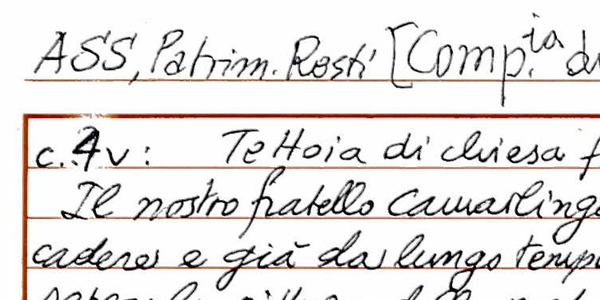 ASS, Patrim. Resti [Comp.ia di
c. 4v: Tettoia di chiesa f
Il nostro fratello camarlingo
cadere e già da lungo temp